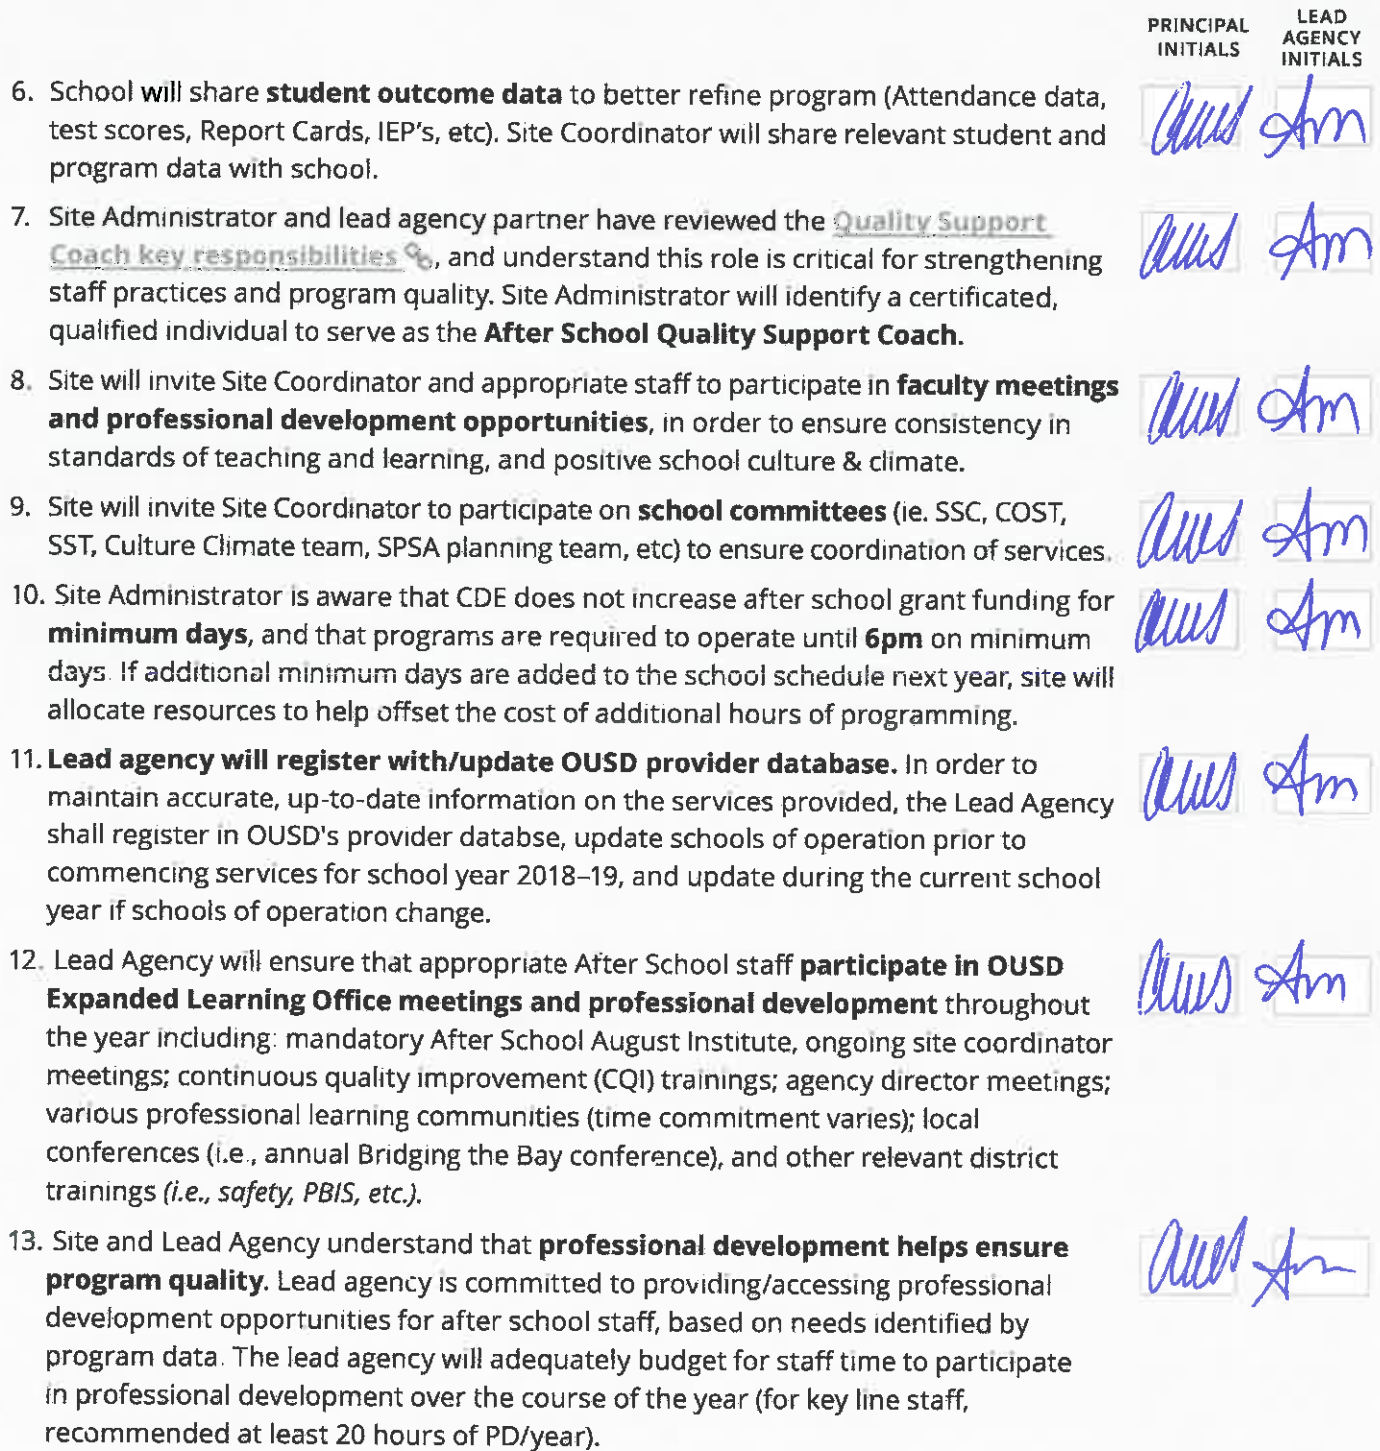 PRINCIPAL INITIALS
LEAD AGENCY INITIALS
6. School will share student outcome data to better refine program (Attendance data,
test scores, Report Cards, IEP's, etc). Site Coordinator will share relevant student and
program data with school.
Am
7. Site Administrator and lead agency partner have reviewed the Quality Support
Coach key responsibilities, and understand this role is critical for strengthening
staff practices and program quality. Site Administrator will identify a certificated,
qualified individual to serve as the After School Quality Support Coach.
Am
8. Site will invite Site Coordinator and appropriate staff to participate in faculty meetings
and professional development opportunities, in order to ensure consistency in
standards of teaching and learning, and positive school culture & climate.
Am
9. Site will invite Site Coordinator to participate on school committees (ie. SSC, COST,
SST, Culture Climate team, SPSA planning team, etc) to ensure coordination of services.
Am
10. Site Administrator is aware that CDE does not increase after school grant funding for
minimum days, and that programs are required to operate until 6pm on minimum
days. If additional minimum days are added to the school schedule next year, site will
allocate resources to help offset the cost of additional hours of programming.
Am
11. Lead agency will register with/update OUSD provider database. In order to
maintain accurate, up-to-date information on the services provided, the Lead Agency
shall register in OUSD's provider databse, update schools of operation prior to
commencing services for school year 2018–19, and update during the current school
year if schools of operation change.
Am
12. Lead Agency will ensure that appropriate After School staff participate in OUSD
Expanded Learning Office meetings and professional development throughout
the year including: mandatory After School August Institute, ongoing site coordinator
meetings; continuous quality improvement (CQI) trainings; agency director meetings;
various professional learning communities (time commitment varies); local
conferences (i.e., annual Bridging the Bay conference), and other relevant district
trainings (i.e., safety, PBIS, etc.).
Am
13. Site and Lead Agency understand that professional development helps ensure
program quality. Lead agency is committed to providing/accessing professional
development opportunities for after school staff, based on needs identified by
program data. The lead agency will adequately budget for staff time to participate
in professional development over the course of the year (for key line staff,
recommended at least 20 hours of PD/year).
Am